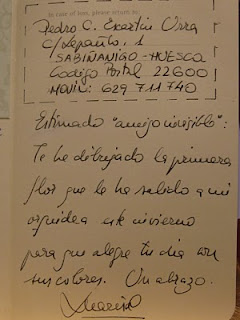 In case of loss, please return to:
Pedro C. Escartín Urra
C/ Lepanto, 1
SABIÑANIGO - HUESCA
Codigo Postal 22600
MOVIL: 629 711 740
Estimado "amigo invisible":
Te he dibujado la primera
flor que le ha salido a mi
orquidea este invierno
para que alegre tu dia con
sus colores. Un abrazo.